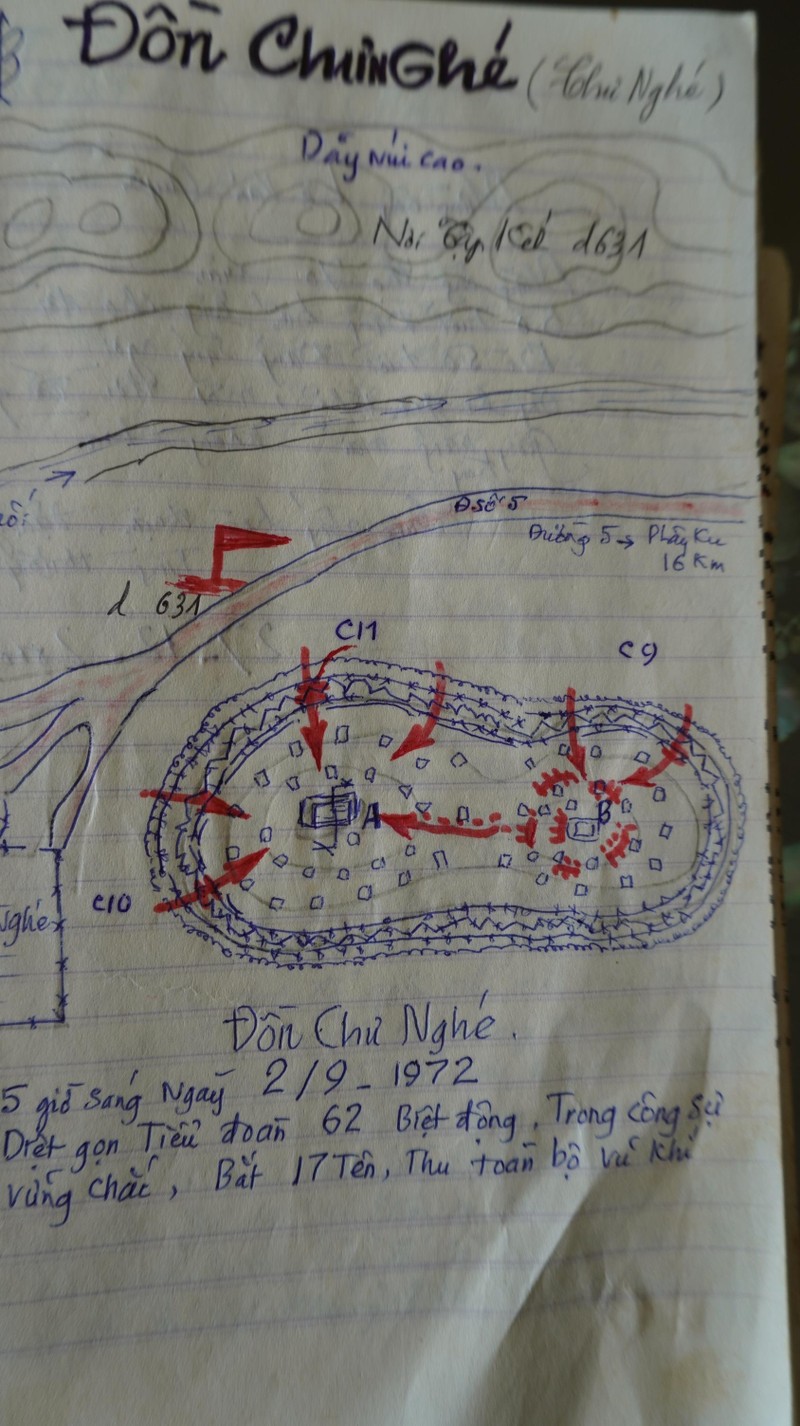 Đồn ChưNGhé (Chư Nghé)
Dãy núi cao.
Nơi Tập Kết d631
Đ Số 5
Đường 5 → Plây Ku
16 Km
ối
d 631
C11
C9
A
B
C10
Nghé
Đồn Chư Nghé.
5 giờ sáng Ngaỳ 2/9-1972
Diệt gọn Tiểu đoàn 62 Biệt động, Trong công sự
vững chắc, Bắt 17 Tên, Thu toàn bộ vũ khí